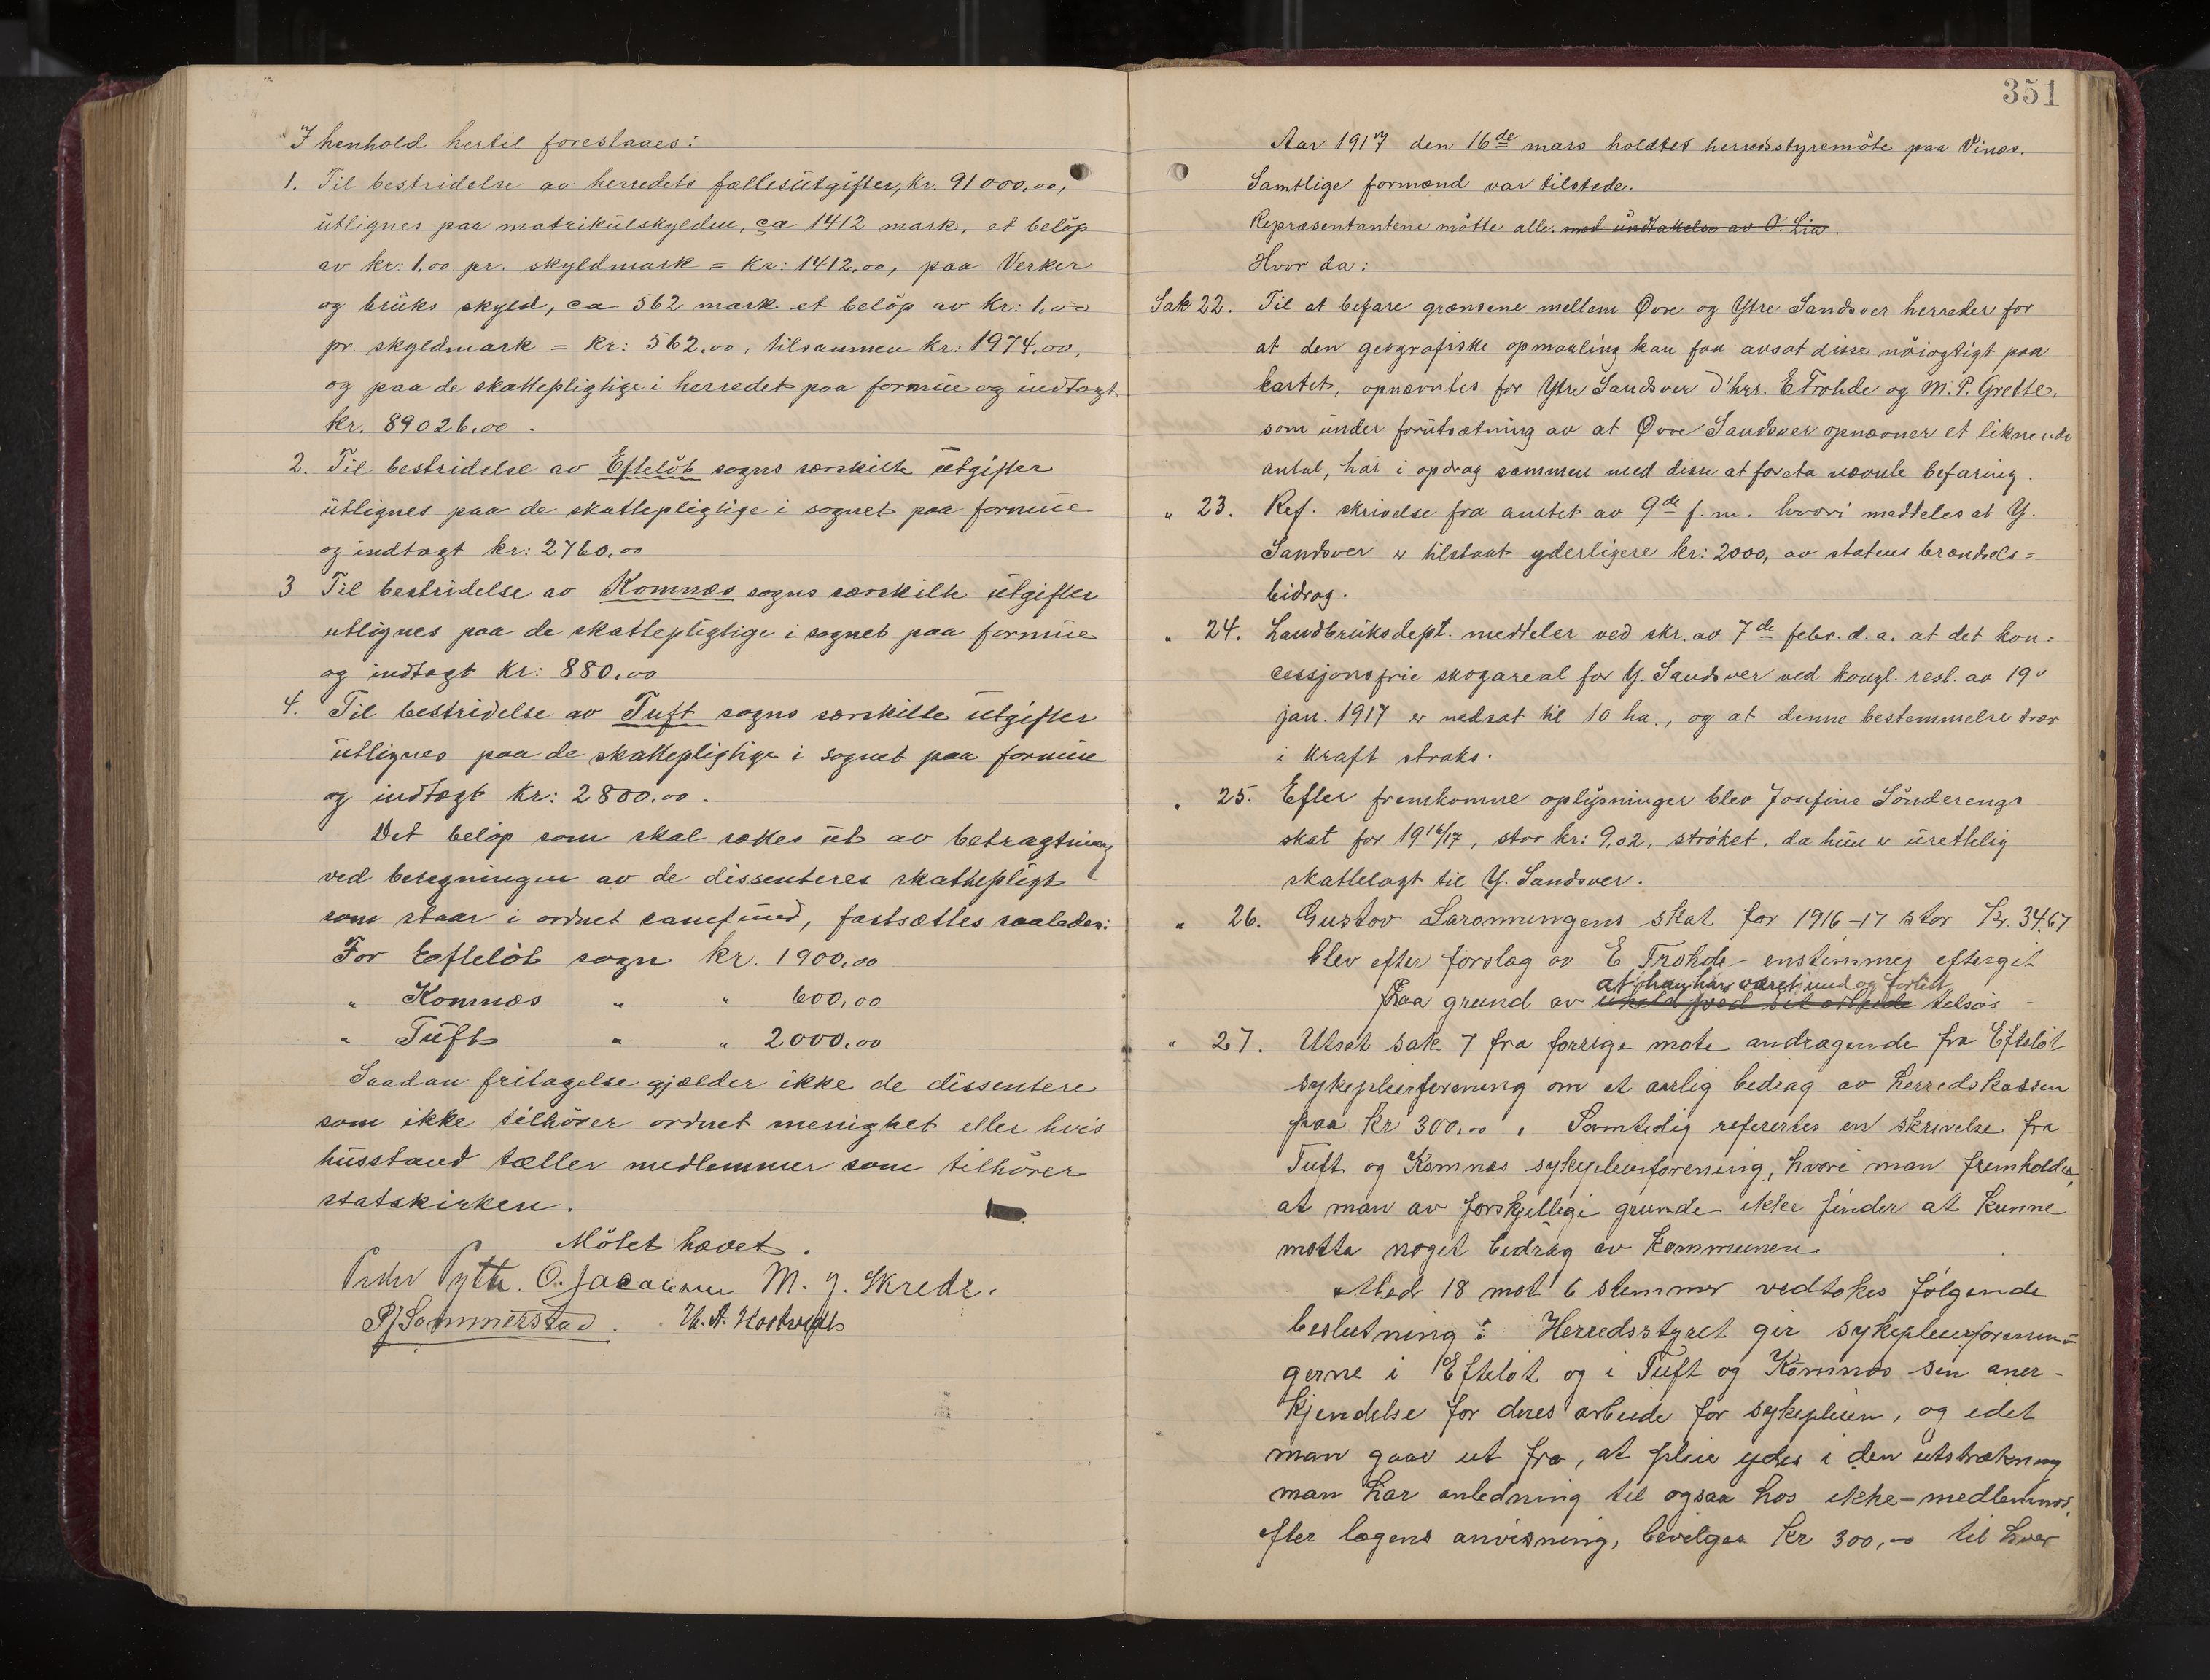 I henhold hertil foreslaaes:
1. Til bestridelse av herredets fællesutgifter, kr. 91000.00,
utlignes paa matrikulskylden, ca 1412 mark, et beløp
av kr: 1.00 pr. skyldmark = kr: 1412.00, paa Verker
og bruks skyld, ca 562 mark et beløp av kr: 1.00
pr. skyldmark = kr: 562.00, tilsammen kr: 1974.00,
og paa de skattepligtige i herredet paa formue og indtægt
kr. 89026.00.
2. Til bestridelse av Efteløt sogns særskilte utgifter
utlignes paa de skattepligtige i sognet paa formue
og indtægt kr: 2760.00
3 Til bestridelse av Komnæs sogns særskilte utgifter
utlignes paa de skattepligtige i sognet paa formue
og indtægt kr: 880.00
4. Til bestridelse av Tuft sogns særskilte utgifter
utlignes paa de skattepligtige i sognet paa formue
og indtægt kr: 2800.00.
Det beløp som skal sættes ut av betragtning
ved beregningen av de dissenteres skattepligt
som staar i ordnet samfund, fastsættes saaledes:
For Efteløt sogn kr. 1900.00
" Komnæs " " 600.00
" Tuft " " 2000.00
Saadan fritagelse gjælder ikke de dissentere
som ikke tilhører ordnet menighet eller hvis
husstand tæller medlemmer som tilhører
statskirken.
Møtet hævet.
Peder Pytte. O. Jacobsen M. J. Skrede.
P J Sommerstad. H. A.
351
Aar 1917 den 16de mars holdtes herredsstyremøte paa Vinæs.
Samtlige formænd var tilstede.
Repræsentantene møtte alle. med undtakelse av O. Lia.
Hvor da:
Sak 22. Til at befare grænsene mellem Øvre og Ytre Sandsvær herreder for
at den geografiske opmaaling kan faa avsat disse nøiagtigt paa
kartet, opnævntes for Ytre Sandsvær d'hrr. E Frohde og M. P. Grette,
som under forutsætning av at Øvre Sandsvær opnævner et liknende
antal, har i opdrag sammen med disse at foreta nævnte befaring.
" 23. Ref. skrivelse fra amtet av 9de f. m. hvori meddeles at Y.
Sandsvær er tilstaat yderligere kr: 2000, av statens brændsels=
bidrag.
" 24. Landbruksdept. meddeler ved skr. av 7de febr. d. a. at det kon=
cessjonsfrie skogareal for Y. Sandsvær ved kongl. resl. av 19"
jan. 1917 er nedsat til 10 ha., og at denne bestemmelse trær
i kraft straks.
" 25. Efter fremkomne oplysninger blev Josefine Sønderengs
skat for 1916/17, stor kr: 9,02, strøket, da hun er urettelig
skattelagt til Y. Sandsvær.
" 26. Gustav Laronningens skat for 1916-17 stor Kr. 34.67
blev efter forslag av E Frohde enstemmig eftergit
paa grund av at han har været ude og forlist tilsøs -
" 27. Utsat sak 7 fra forrige møte andragende fra Efteløt
sykepleierforening om et aarlig bidrag av herredskassen
paa kr 300.00. Samtidig referertes en skrivelse fra
Tuft og Komnæs sykepleierforening, hvori man fremholder,
at man av forskjellige grunde ikke finder at kunne
motta noget bidrag av kommunen
Med 18 mot 6 stemmer vedtokes følgende
beslutning: Herredsstyret gir sykepleierforenin=
gerne i Efteløt og i Tuft og Komnæs sin aner-
kjendelse for deres arbeide for sykepleien, og idet
man gaar ut fra, at pleie ydes i den utstrækning
man har anledning til ogsaa hos ikke-medlemmer,
efter lægens anvisning, bevilges kr 300,00 til hver